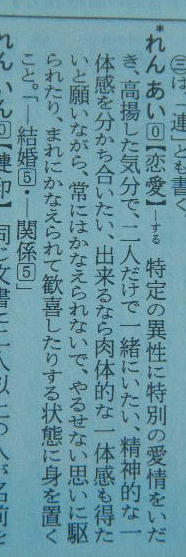 ㊂は「一連」とも書く
*れんあい⓪【恋愛】―する 特定の異性に特別の愛情をいだ
き、高揚した気分で、二人だけで一緒にいたい、精神的な一
体感を分かち合いたい、出来るなら肉体的な一体感も得た
いと願いながら、常にはかなえられないで、やるせない思いに駆
られたり、まれにかなえられて歓喜したりする状態に身を置く
こと。「―結婚⑤・―関係⑤」
れんいん⓪【連印】 同じ文書に二人以上の人が名前を